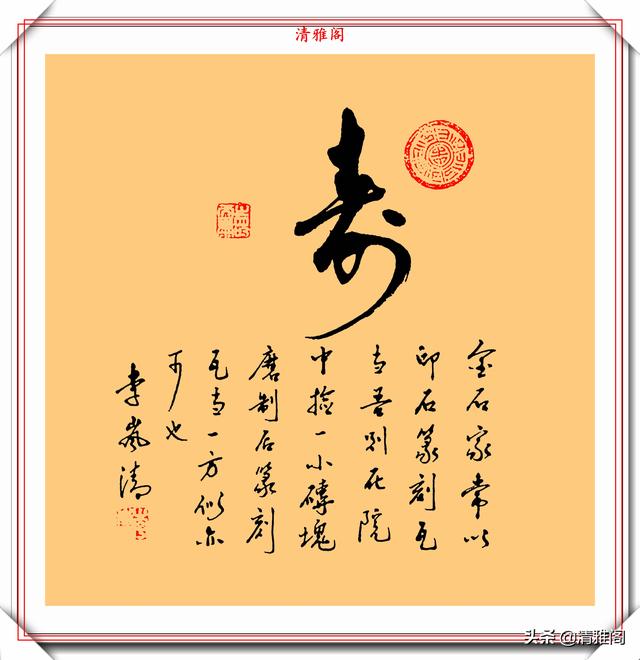 清雅阁
寿
金石家常以
印石篆刻瓦
当吾则在院
中捡一小砖块
磨制后篆刻
瓦当一方似亦
可也
李岚清
头条 @清雅阁